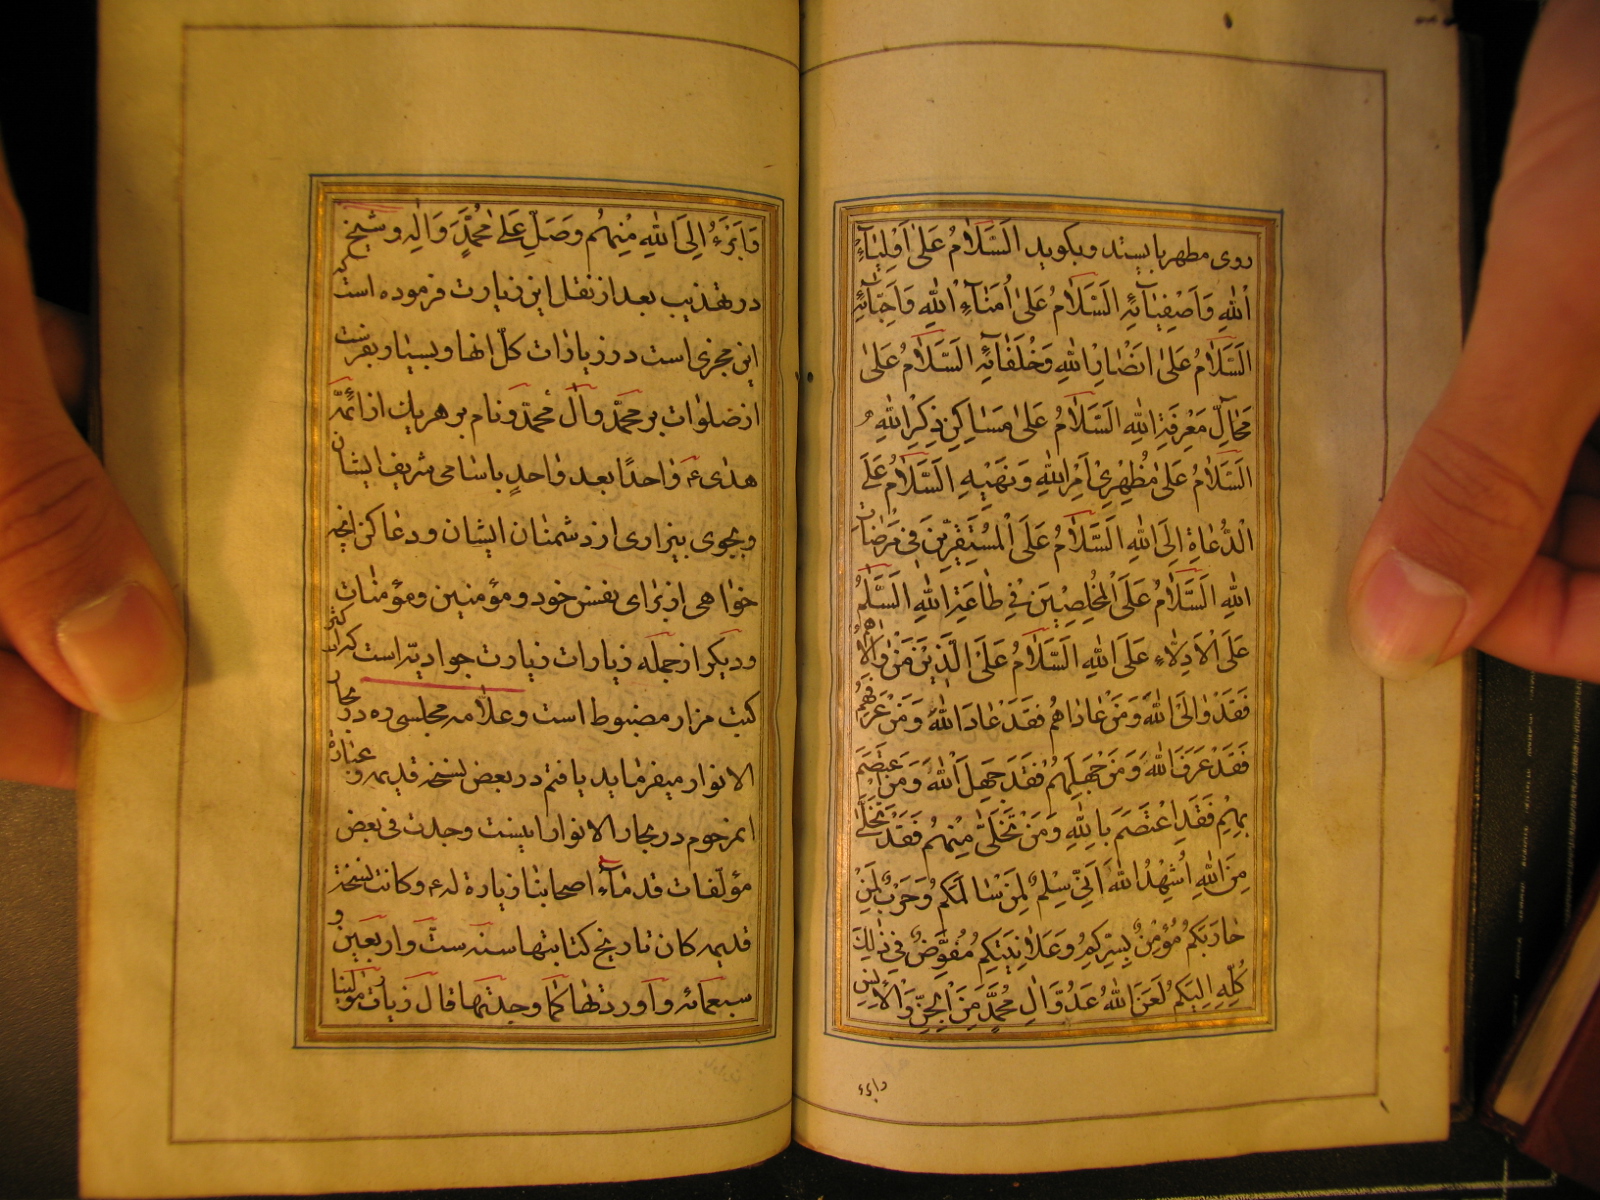 روی مطهر بایستد و بکوید اَلسَّلامُ عَلیٰ اَوْلِیٰآءِ
اللهِ وَاَصْفِیٰآئِهِ اَلسَّلامُ عَلیٰ اُمَنٰآءِ اللهِ وَاَحِبّٰآئِهِ
اَلسَّلامُ عَلیٰ اَنْصٰارِ اللهِ وَخُلَفٰآئِهِ اَلسَّلامُ عَلیٰ
مَحٰآلِّ مَعْرِفَةِ اللهِ اَلسَّلامُ عَلیٰ مَسٰاکِنِ ذِکْرِ اللهِ
اَلسَّلامُ عَلیٰ مُظْهِرِیْ اَمْرِ اللهِ وَنَهْیِهِ اَلسَّلامُ عَلَی
الْدُّعٰاةِ اِلَی اللهِ اَلسَّلامُ عَلَی الْمُسْتَقِرّینَ فی مَرْضٰاتِ
اللهِ اَلسَّلامُ عَلَی الْمُخْلِصینَ فی طٰاعَةِ اللهِ اَلسَّلامُ
عَلَی الْاَدِلّٰاءِ عَلَی اللهِ اَلسَّلامُ عَلَی الَّذینَ مَنْ وٰالاهُمْ
فَقَدْ وٰالَی اللهَ وَمَنْ عٰادٰاهُمْ فَقَدْ عٰادَ اللهَ وَمَنْ عَرَفَهُمْ
فَقَدْ عَرَفَ اللهَ وَمَنْ جَهِلَهُمْ فَقَدْ جَهِلَ اللهَ وَمَنِ عْتَصَمَ
بِهِمْ فَقَدِ اعْتَصَمَ بِاللهِ وَمَنْ تَخَلّیٰ مِنْهُمْ فَقَدْ تَخَلّیٰ
مِنَ اللهِ اُشْهِدُ اللهَ اَنّی سِلْمٌ لِمَنْ سٰالَمَکُمْ وَحَرْبٌ لِمَنْ
حٰارَبَکُمْ مُؤْمِنٌ بِسِرِّکُمْ وَعَلانِیَتِکُمْ مُفَوِّضٌ فی ذٰلِكَ
کُلِّهِ اِلَیْکُمْ لَعَنَ اللهُ عَدُوَّ اٰلِ مُحَمَّدٍ مِنَ الْجِنِّ وَالْاِنْسِ
وَاَبْرَءُ اِلَی اللهِ مِنْهُمْ وَصَلِّ عَلیٰ مُحَمَّدٍ وَاٰلِهِ و شیخ ره
در تهذیب بعد از نقل این زیارت فرموده است
این مجزی است در زیارات کلّ انها و بسیار بفرست
از صلوات بر محمّد وآل محمّد و نام بر هر یك از ائمّه
هدی ع واحدًا بعد واحدٍ باسامی شریف ایشان
و بجوی بیزاری از دشمنان ایشان و دعا کن انچه
خواهی از برای نفس خود و مؤمنین و مؤمنات
و دیکر از جمله زیارات زیارت جوادیّه است که در اکثر
کتب مزار مضبوط است و علّامه مجلسی ره در بحار
الانوار میفرماید یافتم در بعض نسخه قدیمه و عبارة
انمرحوم در بحار الانوار اینست وجدت فی بعض
مؤلّفات قدمآء اصحابنا زیارة له ع وکانت نسخة
قدیمه کان تاریخ کتابتها سنه ستّ و اربعین و
سبعمائه و اوردتها کما وجدتها قال زیارت مولینا